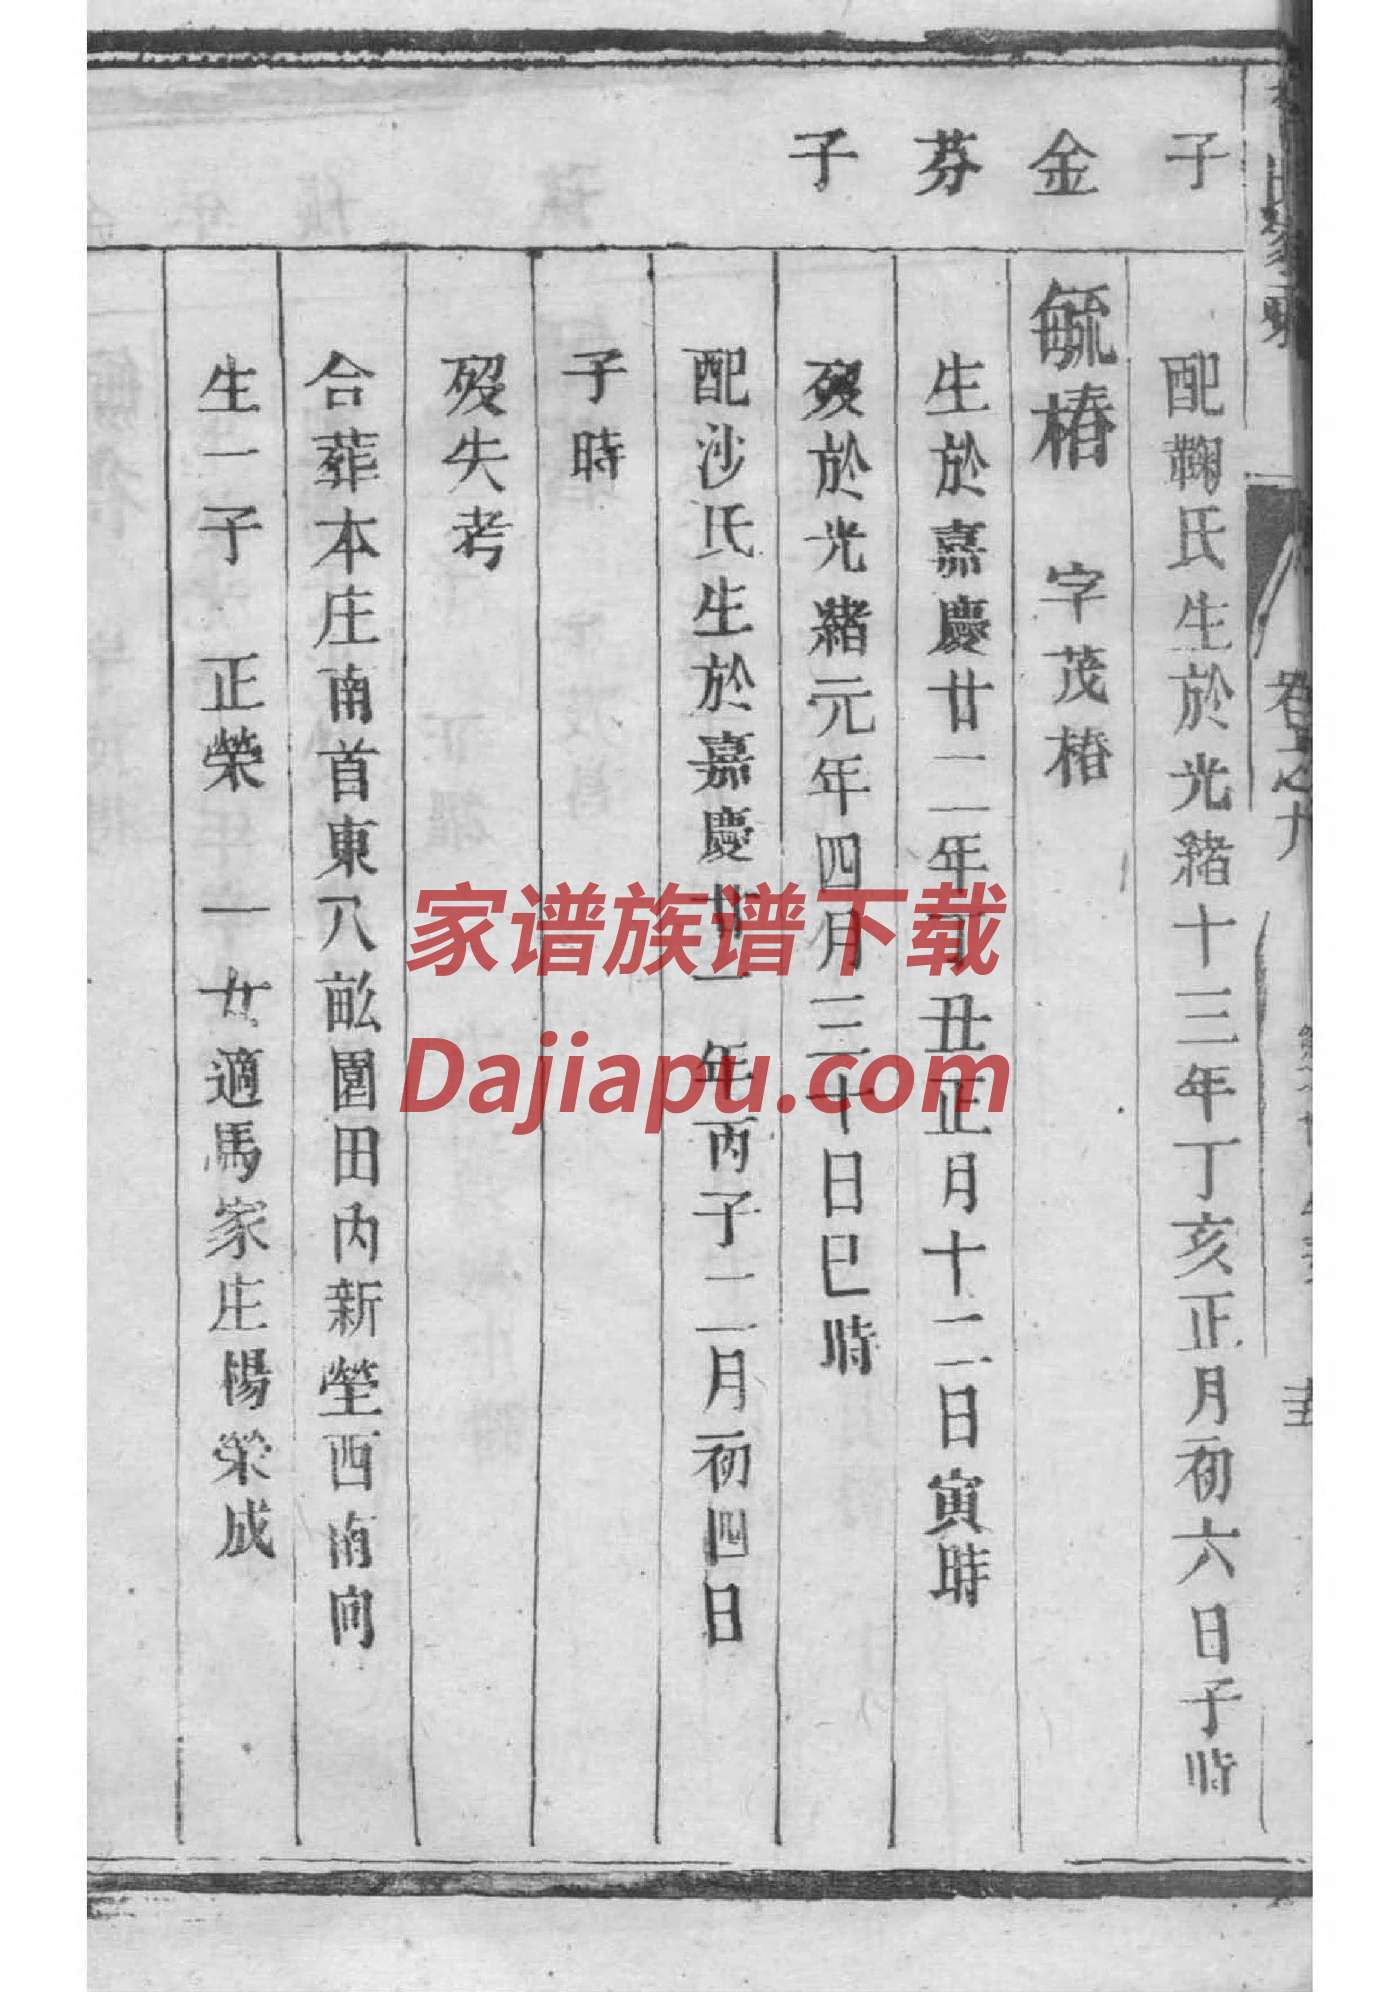 子
金
芬
子
配鞠氏生於光緒十三年丁亥正月初六日子時
毓椿 字茂椿
生於嘉慶廿二年丁丑正月十二日寅時
歿於光緒元年四月三十日巳時
配沙氏生於嘉慶廿一年丙子二月初四日
子時
歿失考
合葬本庄南首東八畝園田內新塋西南向
生一子 正榮 一女適馬家庄楊榮成
家谱族谱下载
Dajiapu.com